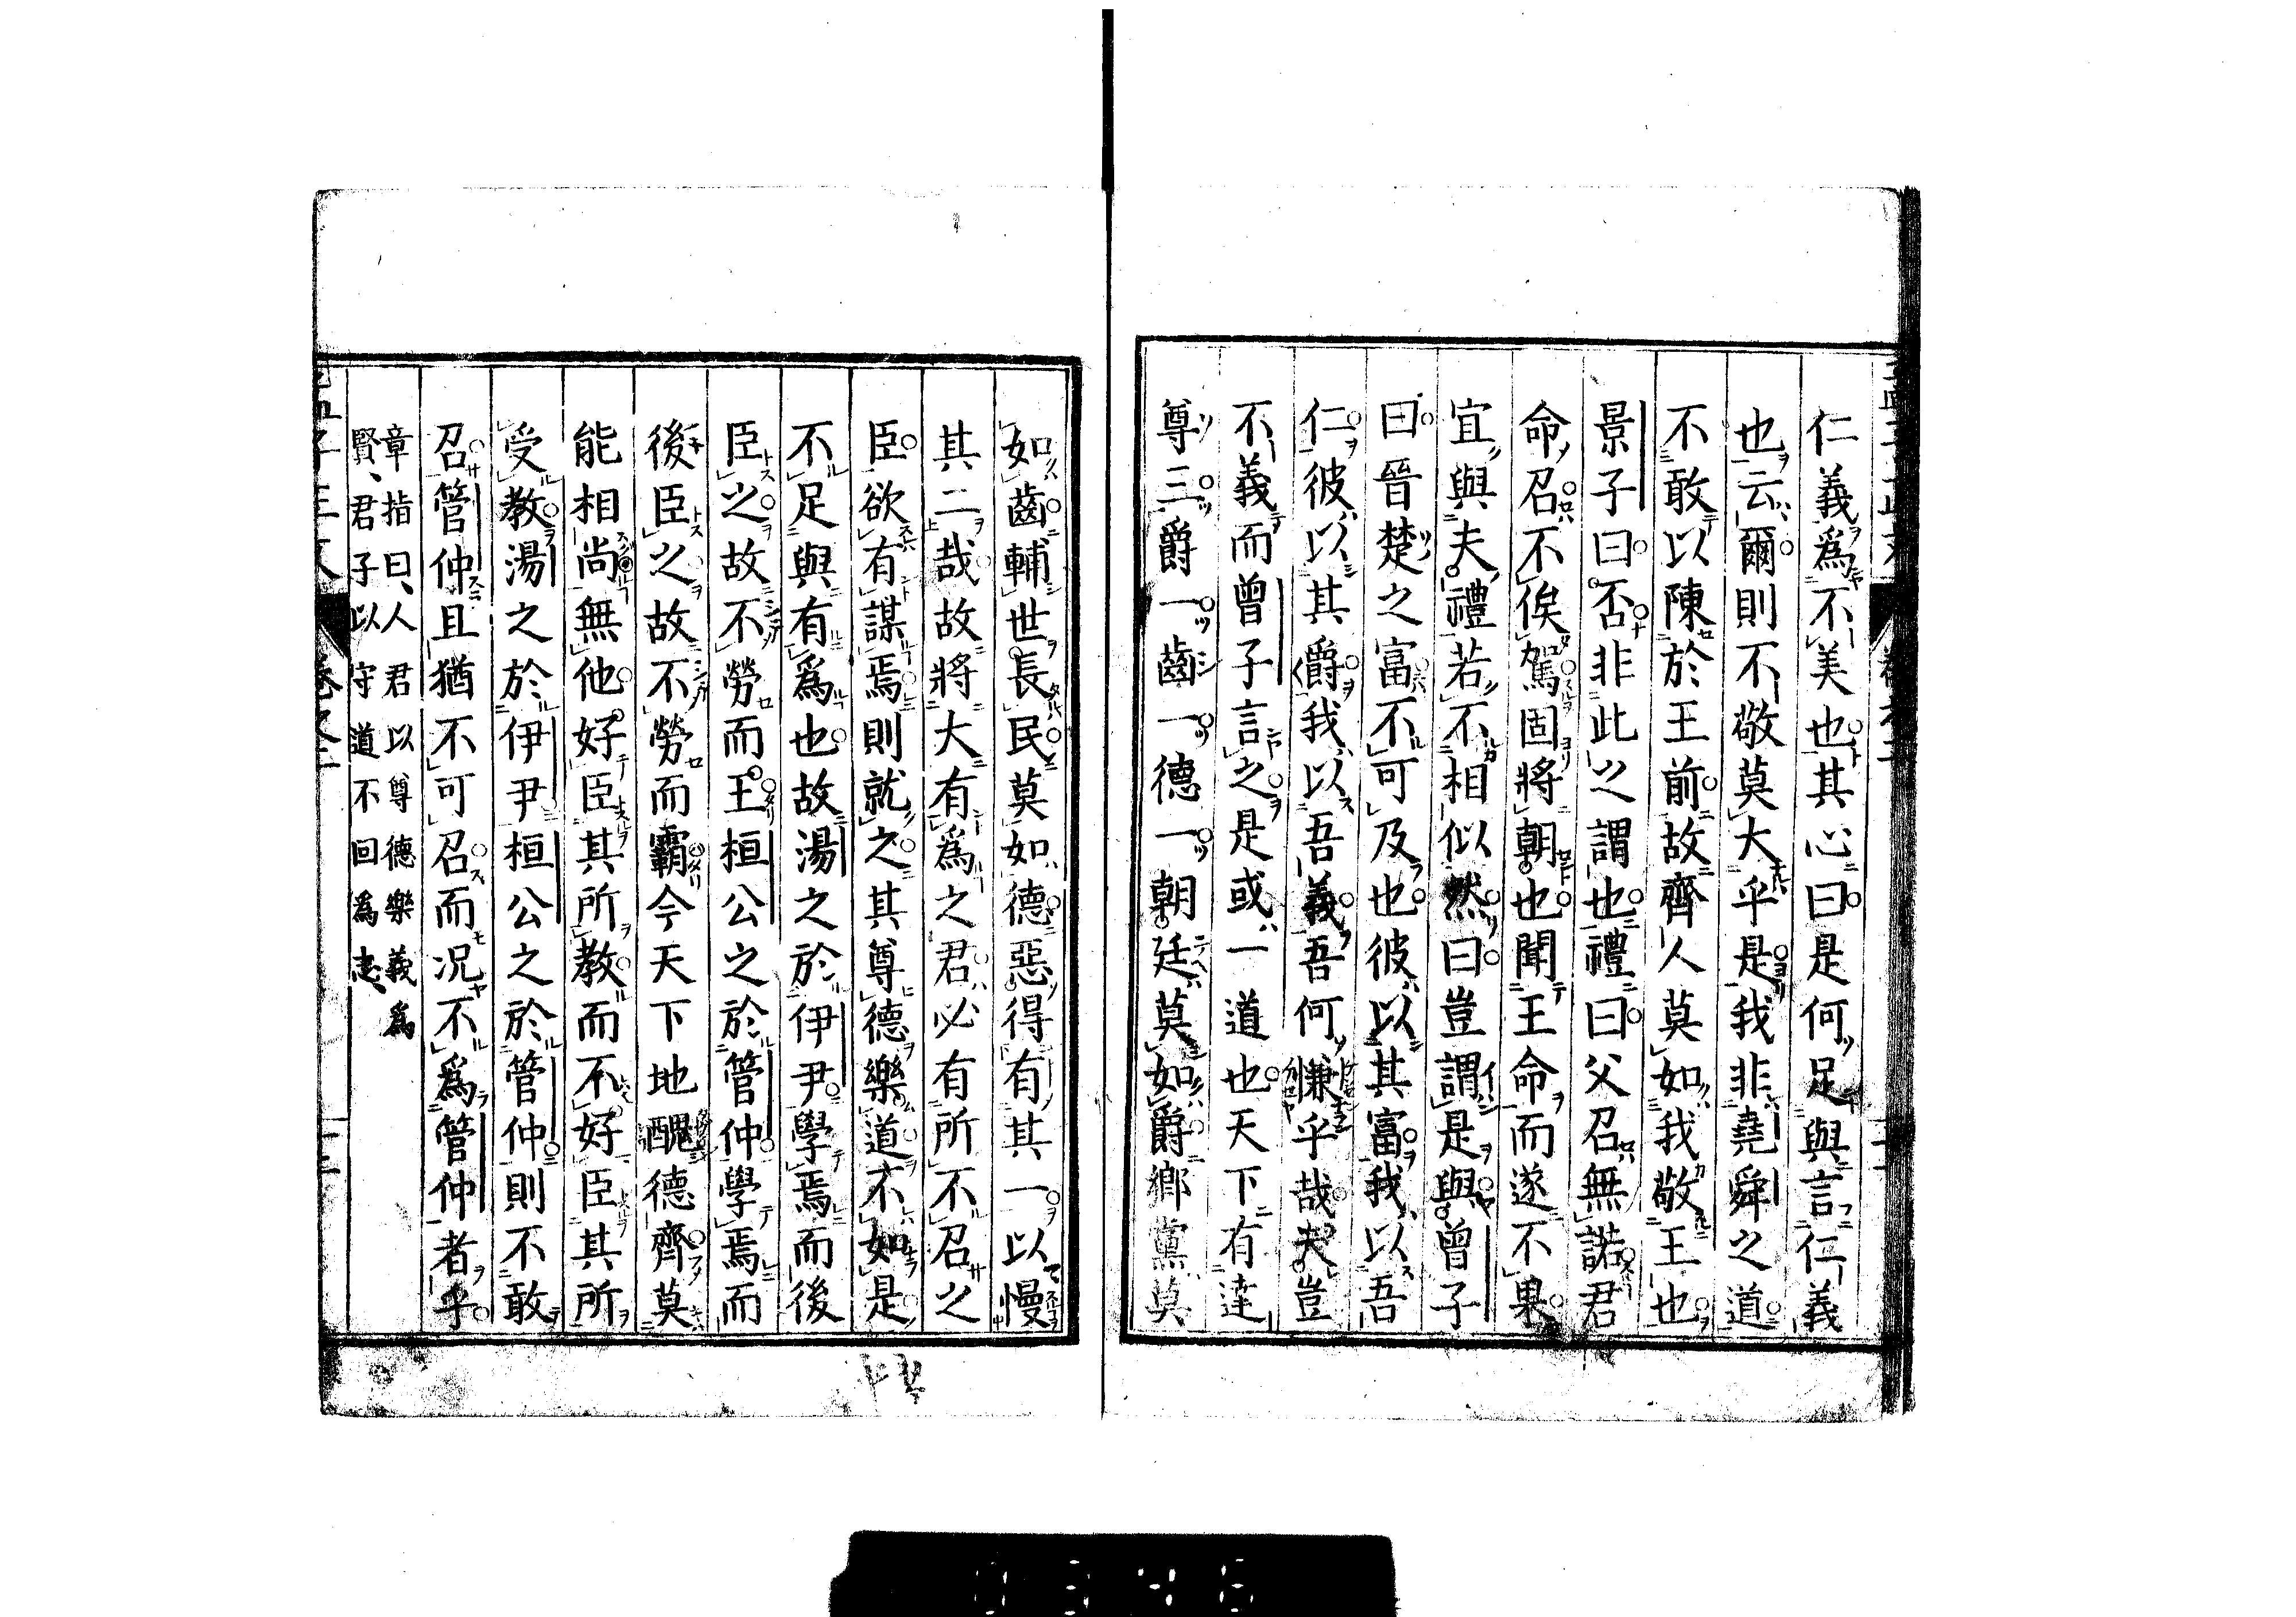 仁義爲不美也其心曰是何足與言仁義
也云爾則不敬莫大乎是我非堯舜之道
不敢以陳於王前故齊人莫如我敬王也
景子曰否非此之謂也禮曰父召無諾君
命召不俟駕固將朝也聞王命而遂不果
宜與夫禮若不相似然曰豈謂是與曾子
曰晉楚之富不可及也彼以其富我以吾
仁彼以其爵我以吾義吾何慊乎哉夫豈
不義而曾子言之是或一道也天下有達
尊三爵一齒一德一朝廷莫如爵鄉黨莫
如齒輔世長民莫如德惡得有其一以慢
其二哉故將大有爲之君必有所不召之
臣欲有謀焉則就之其尊德樂道不如是
不足與有爲也故湯之於伊尹學焉而後
臣之故不勞而王桓公之於管仲學焉而
後臣之故不勞而霸今天下地醜德齊莫
能相尚無他好臣其所教而不好臣其所
受教湯之於伊尹桓公之於管仲則不敢
召管仲且猶不可召而況不爲管仲者乎
章指曰、人君以尊德樂義爲
賢、君子以守道不回爲志、